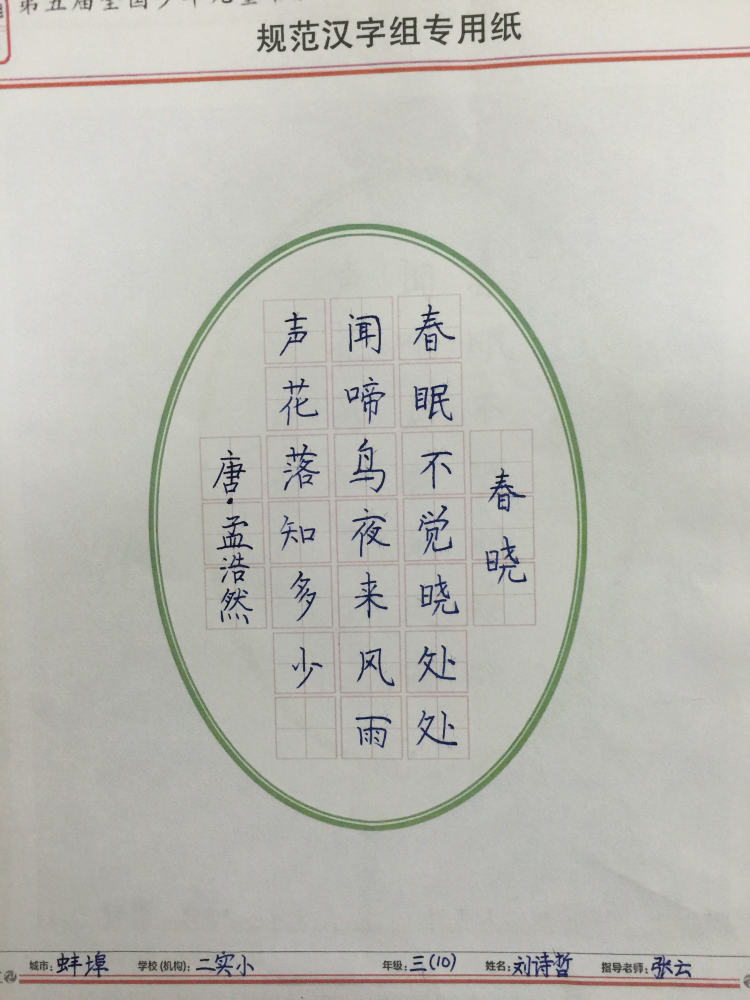 第五届全国少年儿童
规范汉字组专用纸
春晓
春眠不觉晓处处
闻啼鸟夜来风雨
声花落知多少
唐·孟浩然
城市：蚌埠 学校(机构)：二实小 年级：三(10) 姓名：刘诗哲 指导老师：张云